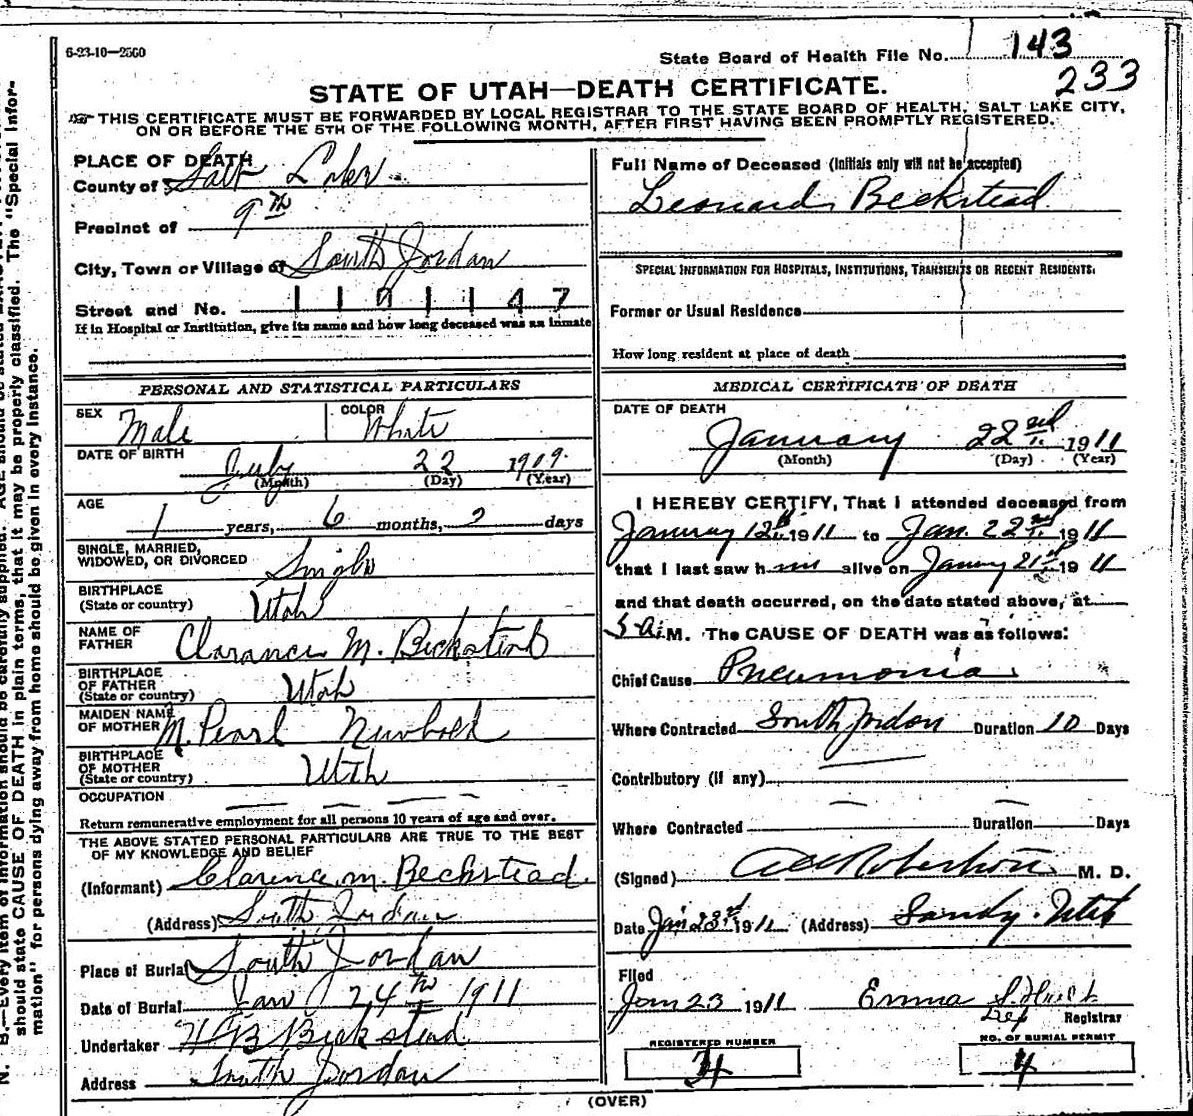 6-23-10—2500
State Board of Health File No. 143
233
STATE OF UTAH—DEATH CERTIFICATE.
THIS CERTIFICATE MUST BE FORWARDED BY LOCAL REGISTRAR TO THE STATE BOARD OF HEALTH, SALT LAKE CITY,
ON OR BEFORE THE 5TH OF THE FOLLOWING MONTH, AFTER FIRST HAVING BEEN PROMPTLY REGISTERED.
PLACE OF DEATH
County of Salt Lake
Precinct of 9th
City, Town or Village of South Jordan
Street and No. 1 1 0 1 1 4 7
If in Hospital or Institution, give its name and how long deceased was an inmate
PERSONAL AND STATISTICAL PARTICULARS
SEX Male COLOR White
DATE OF BIRTH July 22 1909.
(Month) (Day) (Year)
AGE
1 years, 6 months, 2 days
SINGLE, MARRIED,
WIDOWED, OR DIVORCED Single
BIRTHPLACE
(State or country) Utah
NAME OF
FATHER Clarance M. Beckstead
BIRTHPLACE
OF FATHER
(State or country) Utah
MAIDEN NAME
OF MOTHER M. Pearl Newbold
BIRTHPLACE
OF MOTHER
(State or country) Utah
OCCUPATION
Return remunerative employment for all persons 10 years of age and over.
THE ABOVE STATED PERSONAL PARTICULARS ARE TRUE TO THE BEST
OF MY KNOWLEDGE AND BELIEF
(Informant) Clarence M. Beckstead.
(Address) South Jordan
Place of Burial South Jordan
Date of Burial Jan 24th 1911
Undertaker Beckstead
Address South Jordan
Full Name of Deceased (Initials only will not be accepted)
Leonard Beckstead
SPECIAL INFORMATION FOR HOSPITALS, INSTITUTIONS, TRANSIENTS OR RECENT RESIDENTS.
Former or Usual Residence
How long resident at place of death
MEDICAL CERTIFICATE OF DEATH
DATE OF DEATH
January 22nd 1911
(Month) (Day) (Year)
I HEREBY CERTIFY, That I attended deceased from
January 12th 1911 to Jan. 22nd 1911
that I last saw him alive on January 21st 1911
and that death occurred, on the date stated above, at
5 a.M. The CAUSE OF DEATH was as follows:
Chief Cause Pneumonia
Where Contracted South Jordan Duration 10 Days
Contributory (if any)
Where Contracted Duration Days
(Signed) Robertson M. D.
Date Jan 23rd 1911 (Address) Sandy. Utah
Filed
Jan 23 1911 Emma
Dep Registrar
REGISTERED NUMBER
4
NO. OF BURIAL PERMIT
4
(OVER)
N. B.—Every item of information should be carefully supplied. AGE should be stated
should state CAUSE OF DEATH in plain terms, that it may be properly classified. The "Special Infor-
mation" for persons dying away from home should be given in every instance.